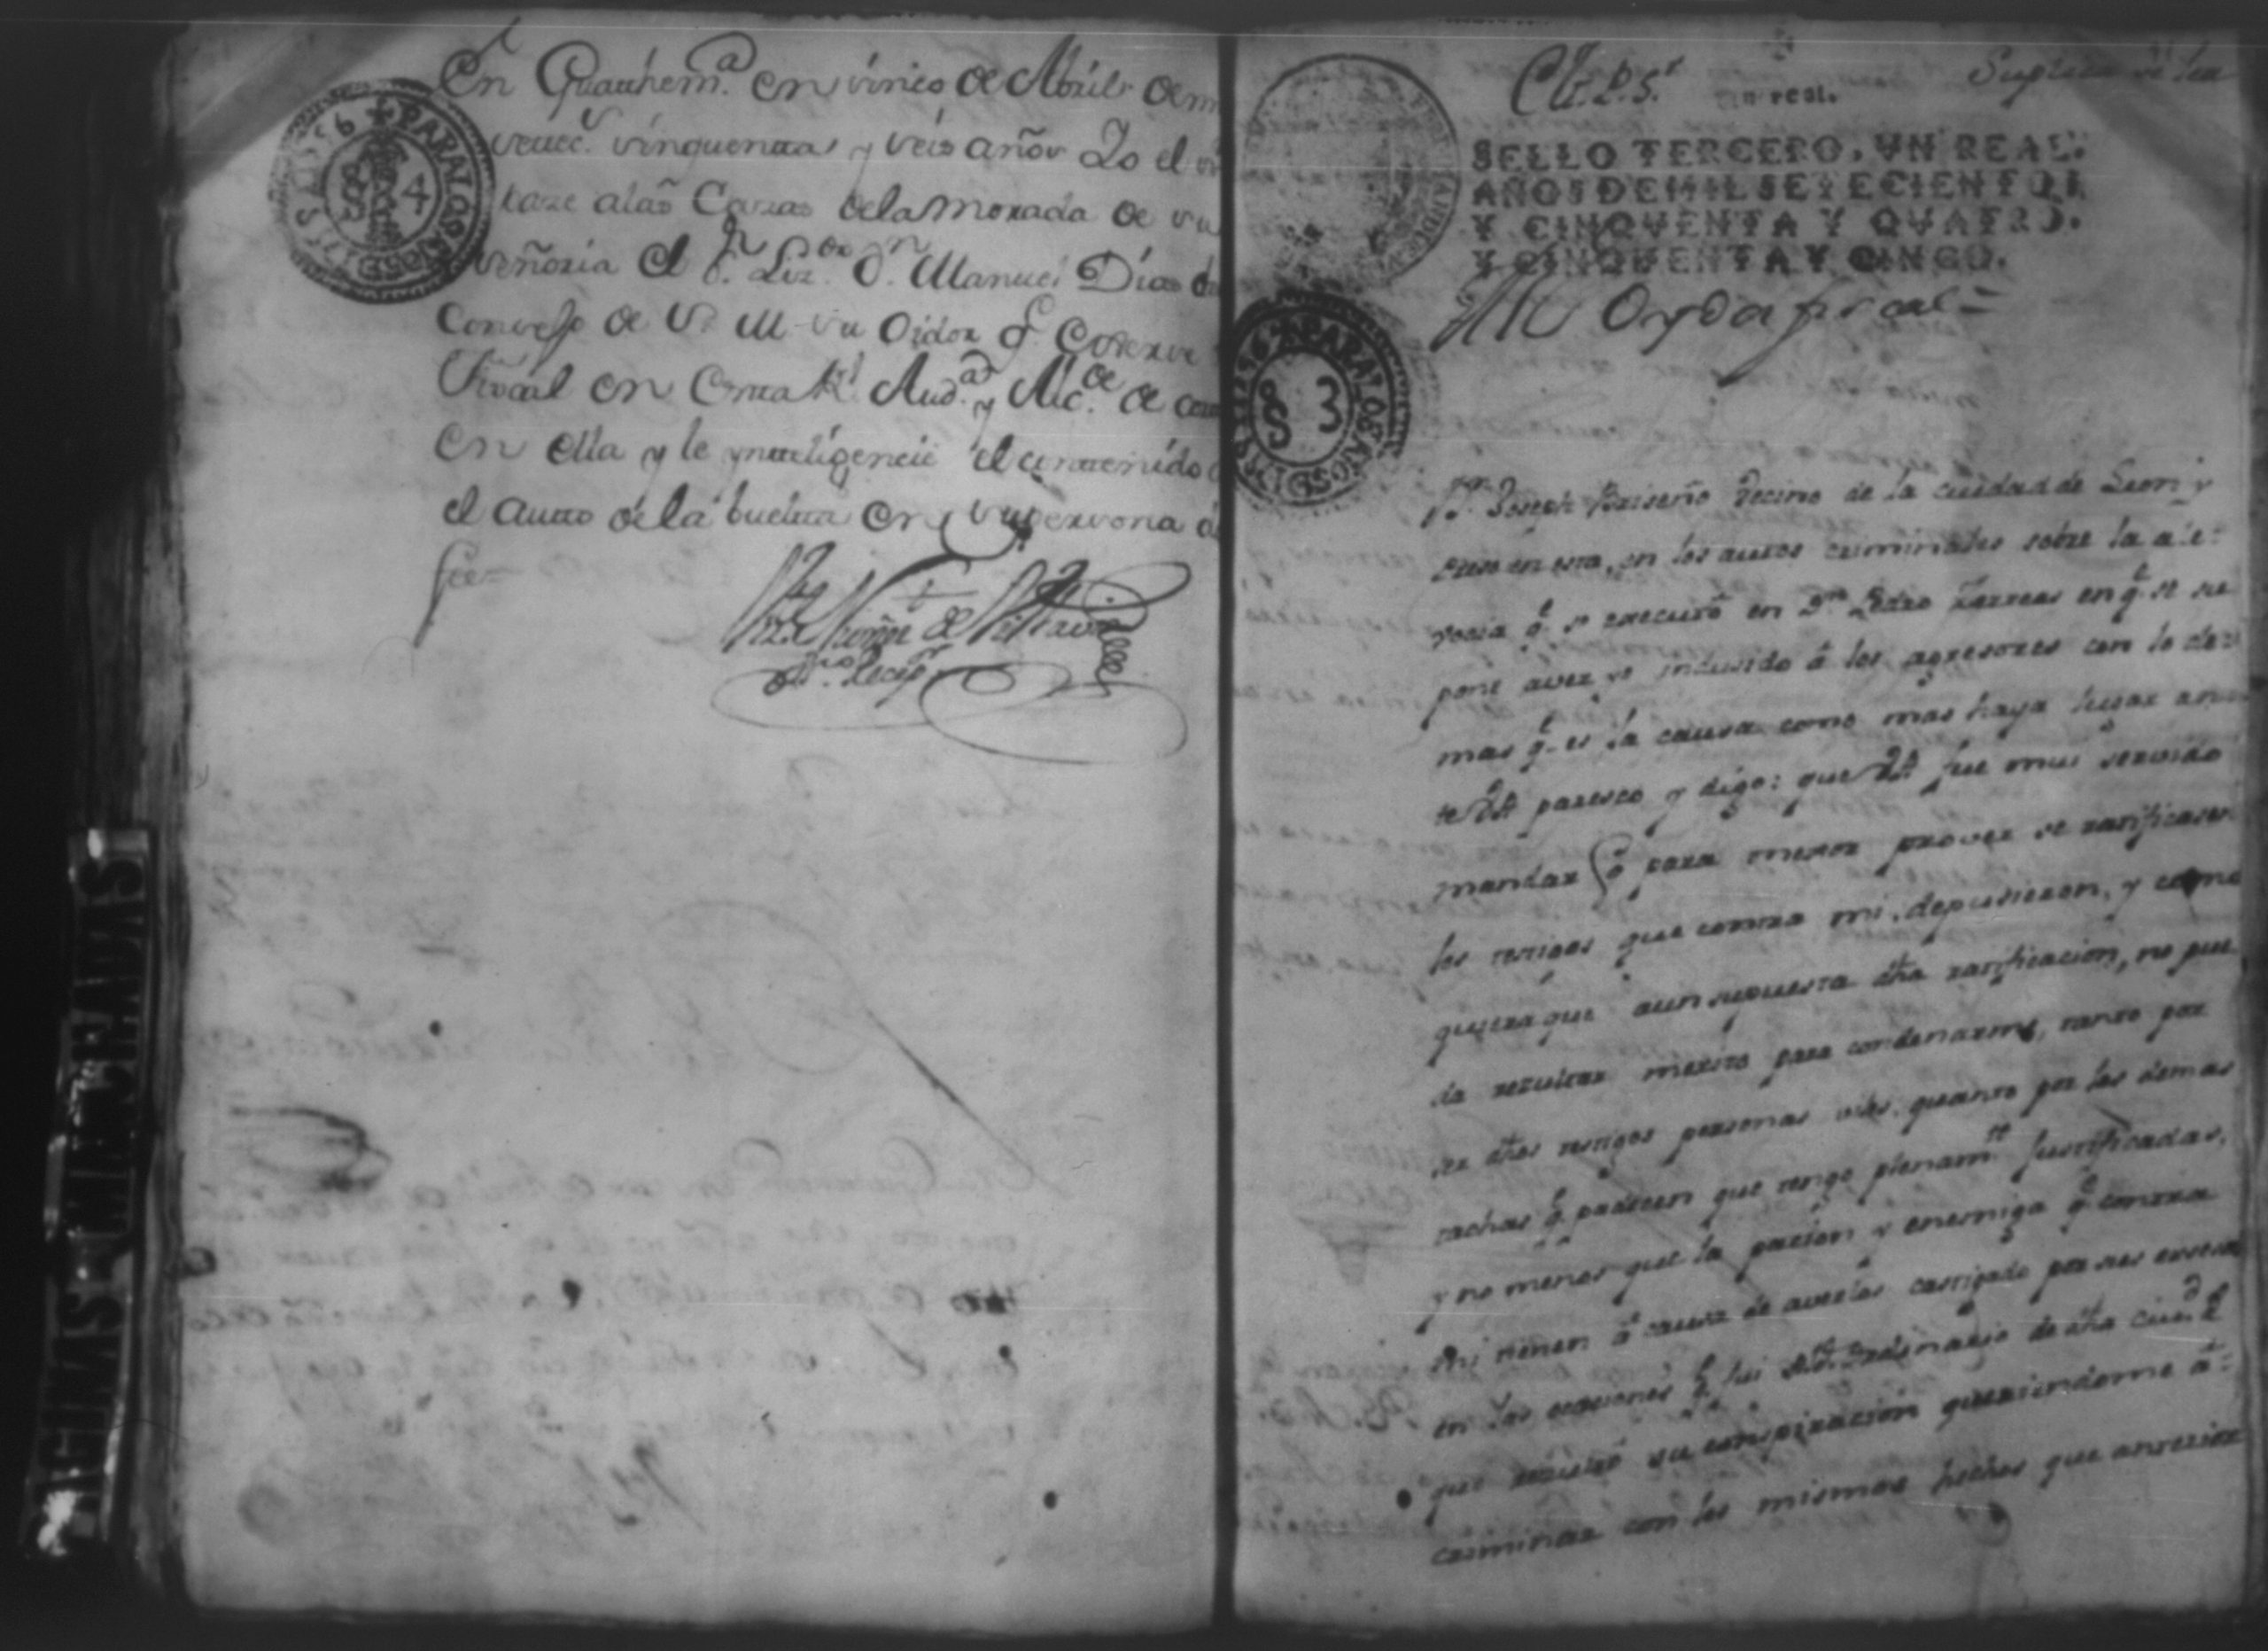 En Guathem.ª en sinco de Abril de m
setec.s sinquenta y seis años Yo el
tare a las Casas de la morada de su
señoria el S.r Liz.do D.n Manuel Dias
Consejo de S. M. su Oidor q.e exerse
Fiscal en esta R.l Aud.ª y Alc.de de
en ella y le ynteligencie el contenido
el auto de la buelta en su persona
fee=
SS.no Recep.r
PARA LOS AÑOS DE 1755 Y 56
4
M. P. S.r
Suplica
Un real.
SELLO TERCERO, VN REAL.
AÑOS DE MIL SETECIENTOS
Y CINQVENTA Y QVATRO.
Y CINQVENTA Y CINCO.
PARA LOS AÑOS DE 1755 Y 56
3
D.n Joseph Briseño Vecino de la cuidad de Leon y
preso en esta, en los autos criminales sobre la ale-
vosia q.e se executó en D.n Pedro en q.e se su
pone aver yo indusido á los agresores con lo de-
mas q.e es la causa como mas haya lugar an
te V.A. paresco y digo: que V.A. fue mui servido
mandar q.e para mexor prover se ratificasen
los testigos que contra mi depusieron, y como
quiera que aun supuesta dha ratificacion, no pue
da resultar merito para condenarme, tanto por
ser dhos testigos personas viles, quanto por las demas
tachas q.e padecen que tengo plenam.te justificadas,
y no menos que la pacion y enemiga q.e contra
mi tienen á causa de averlos castigado por sus exseso
en las ocaciones q.e fui Ordinario de dha ciu.d
que resultó su conspiracion queriendome á-
criminar con los mismos hechos que anterior